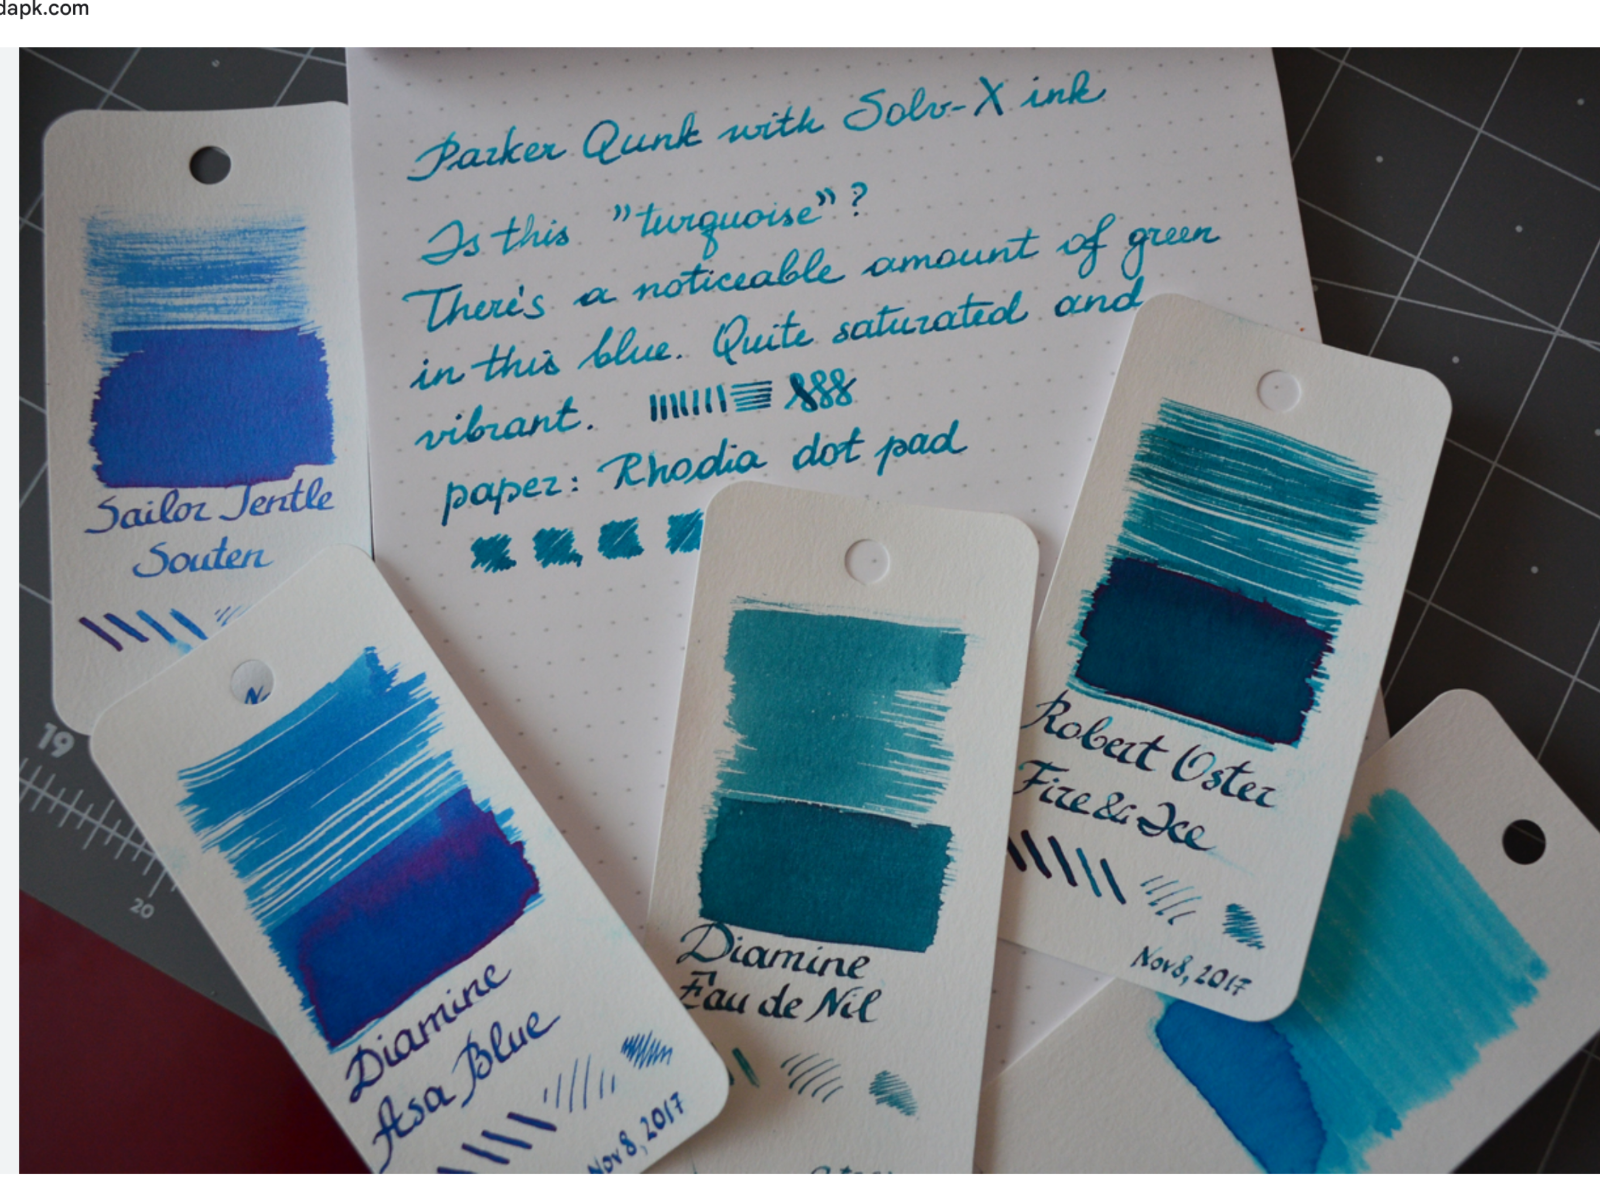 dapk.com
Parker Qunk with Solv-X ink
Is this "turquoise"?
There's a noticeable amount of green
in this blue. Quite saturated and
vibrant.
paper: Rhodia dot pad
Sailor Jentle
Souten
Diamine
Asa Blue
Nov 8, 2017
Diamine
Eau de Nil
Robert Oster
Fire & Ice
Nov 8, 2017
19
20